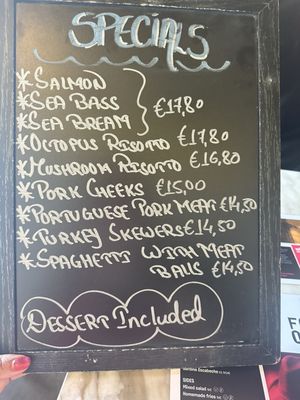 SPECIALS
*SALMON
*SEA BASS
*SEA BREAM €17,80
*OCTOPUS RISOTTO €17,80
*MUSHROOM RISOTTO €16,80
*PORK CHEEKS €15,00
*PORTUGUESE PORK MEAT €14,50
*TURKEY SKEWERS €14,50
*SPAGHETTI WITH MEAT
BALLS €14,50
DESSERT INCLUDED
SIDES
Mixed salad
Homemade fries